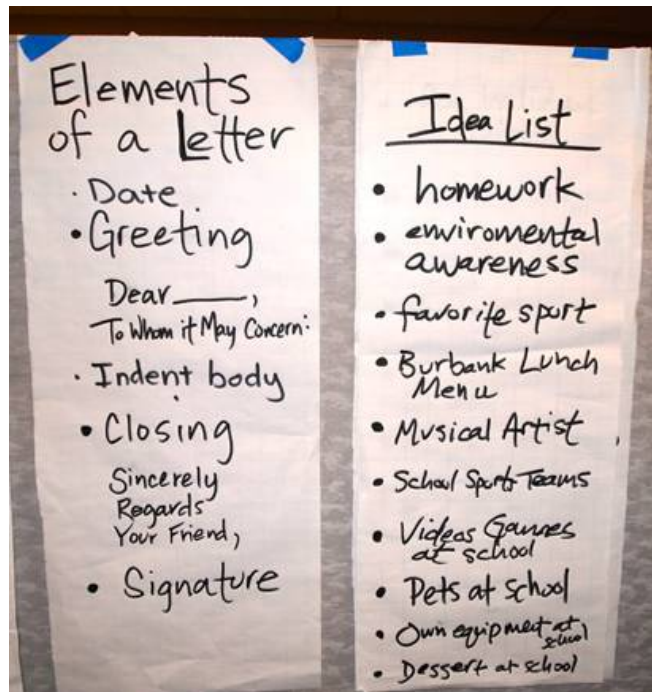 Elements
of a Letter
· Date
• Greeting
Dear______,
To Whom it May Concern:
· Indent body
• Closing
Sincerely
Regards
Your Friend,
• Signature
Idea List
• homework
• enviromental
awareness
• favorite sport
• Burbank Lunch
Menu
• Musical Artist
• School Sports Teams
• Videos Games
at school
• Pets at school
• Own equipment at
school
• Dessert at school